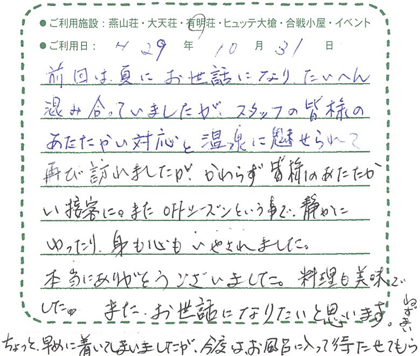 ●ご利用施設：燕山荘・大天荘・有明荘・ヒュッテ大槍・合戦小屋・イベント
●ご利用日： H29 年 10 月 31 日
前回は夏にお世話になり、たいへん
混み合っていましたが、スタッフの皆様の
あたたかい対応と温泉に魅せられて
再び訪れましたが、かわらず皆様のあたたか
い接客に。また OFFシーズンという事で、静かに
ゆったり、身も心もいやされました。
本当にありがとうございました。料理も美味で
した。また、お世話になりたいと思います。
ちょっと、早めに着いてしまいましたが、今度はお風呂に入って待たせてもら